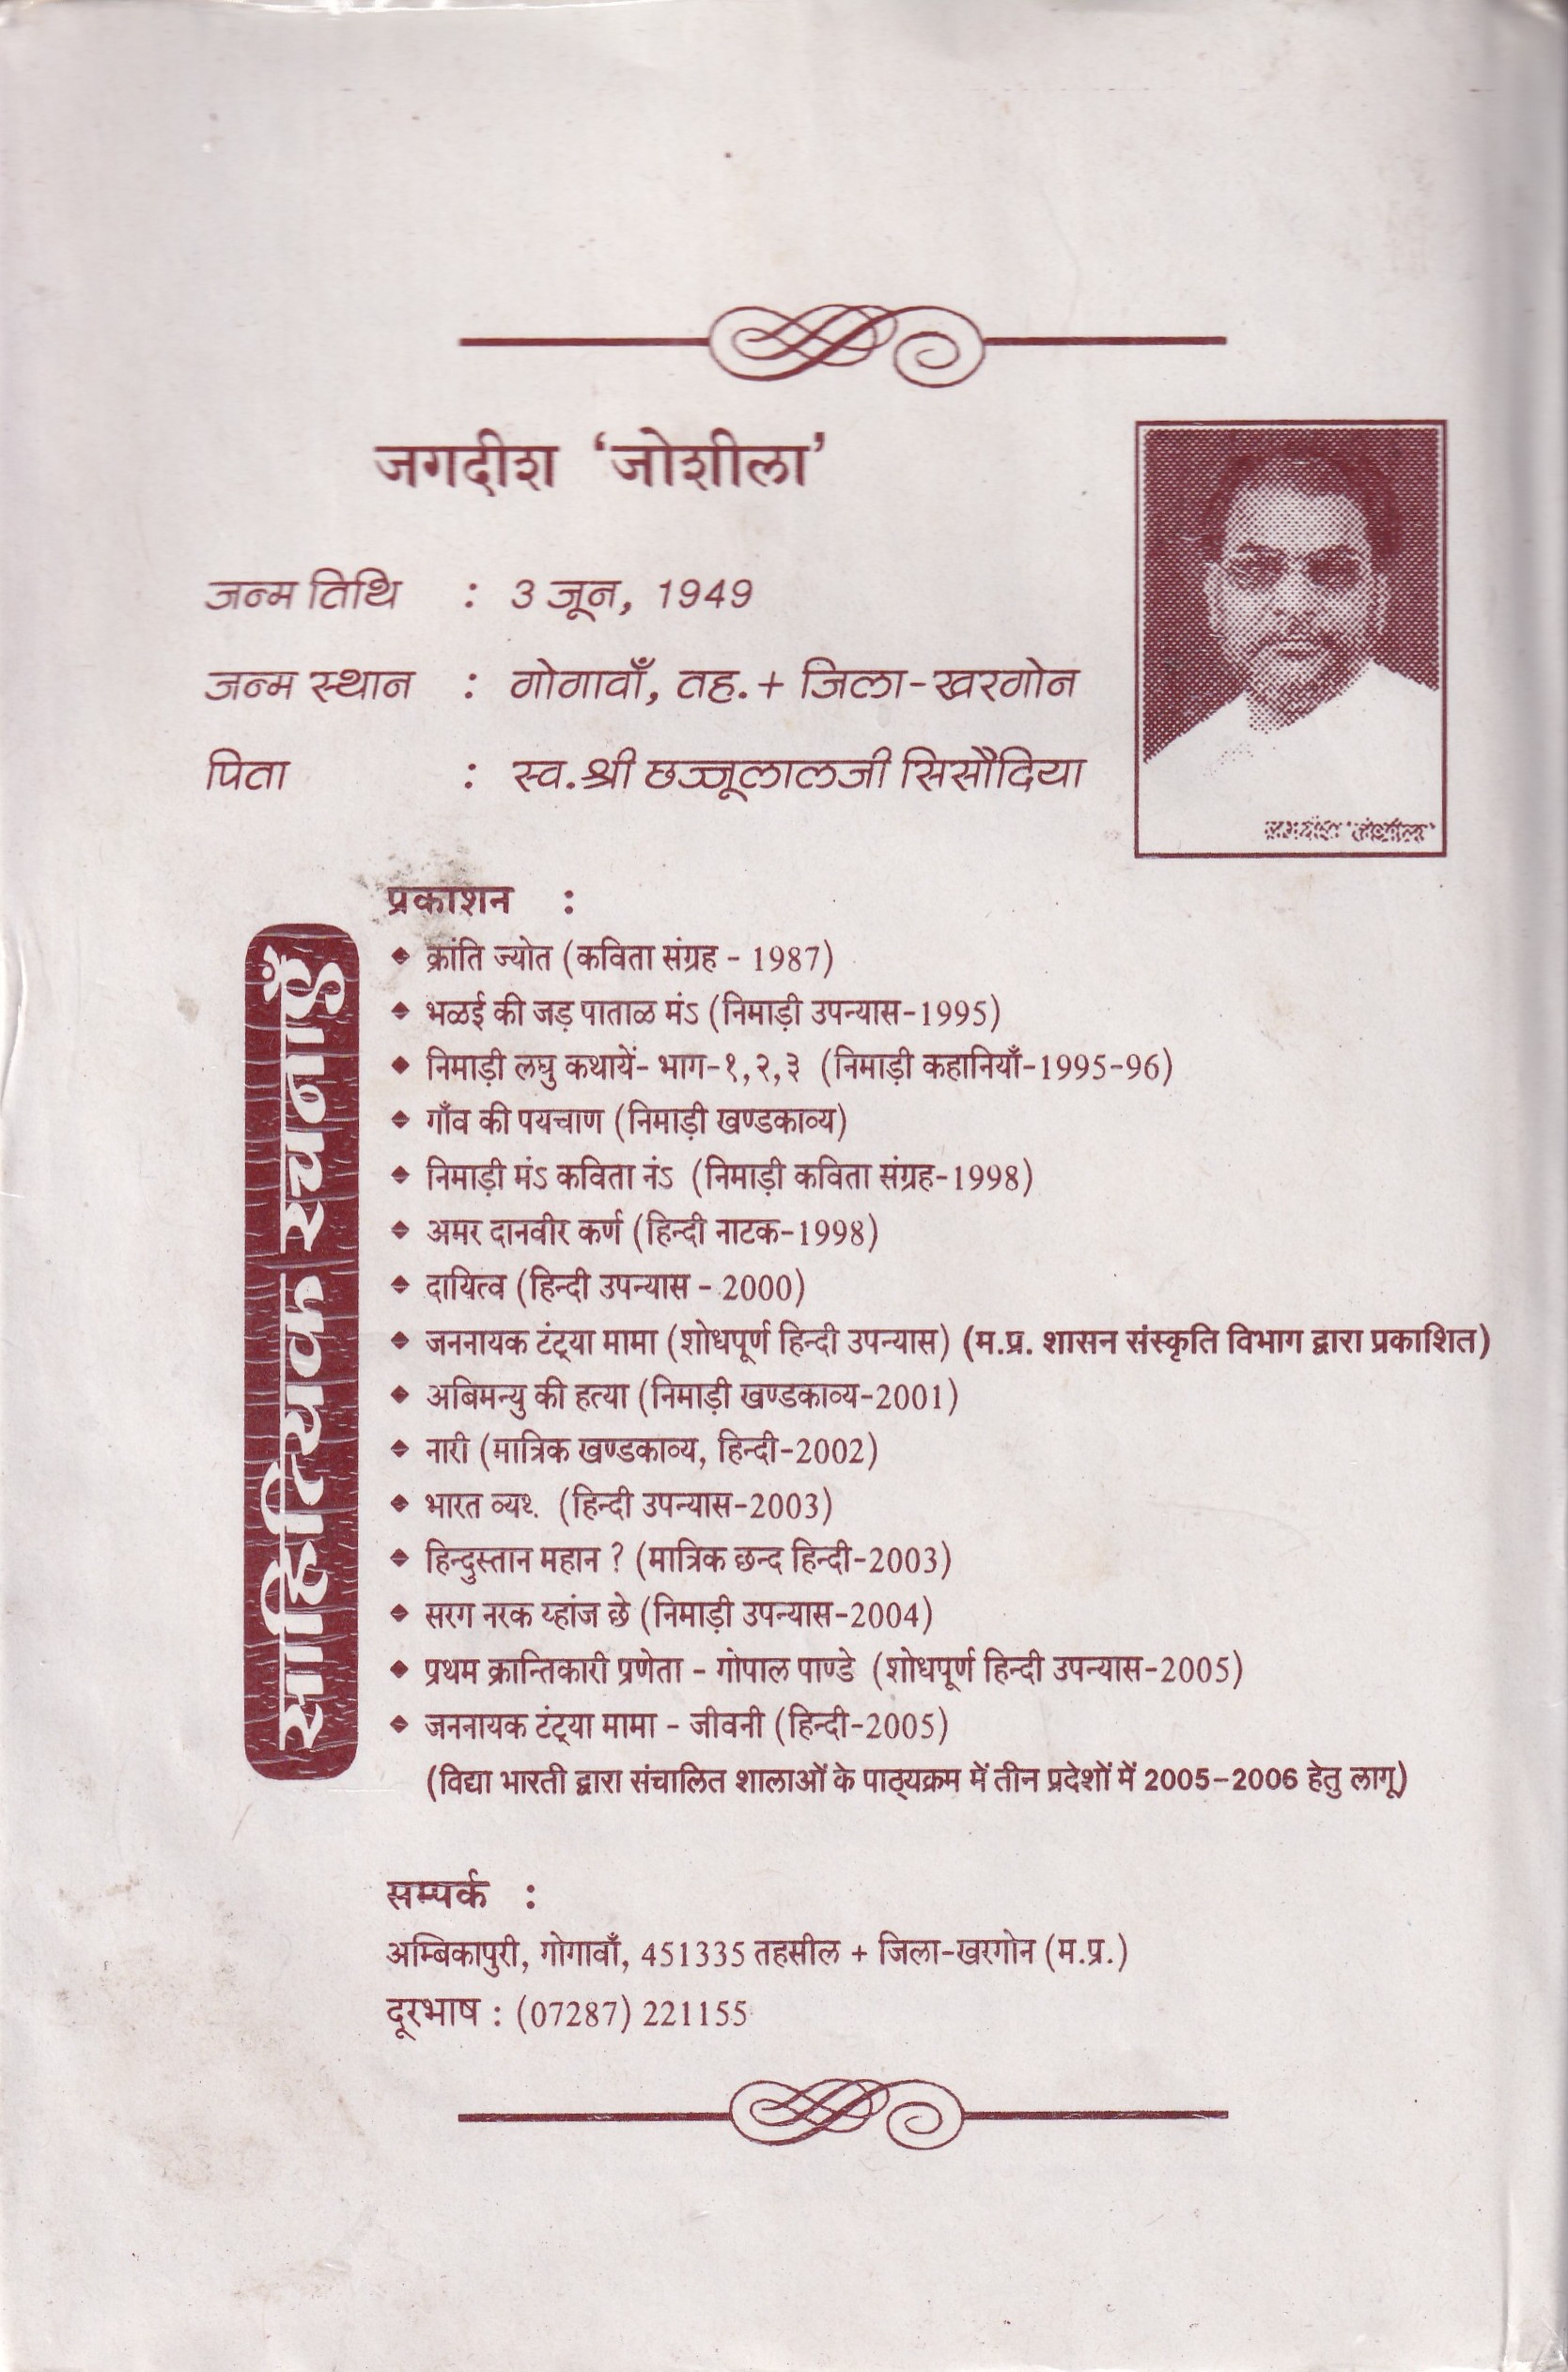 जगदीश ‘जोशीला’
जन्म तिथि : 3 जून, 1949
जन्म स्थान : गोगावाँ, तह.+ जिला-खरगोन
पिता : स्व.श्री छज्जूलालजी सिसौदिया
जगदीश 'जोशीला'
साहित्यिक रचनाएँ
प्रकाशन :
◆ क्रांति ज्योत (कविता संग्रह - 1987)
◆ भळई की जड़ पाताळ मंऽ (निमाड़ी उपन्यास-1995)
◆ निमाड़ी लघु कथायें- भाग-१,२,३ (निमाड़ी कहानियाँ-1995-96)
◆ गाँव की पयचाण (निमाड़ी खण्डकाव्य)
◆ निमाड़ी मंऽ कविता नंऽ (निमाड़ी कविता संग्रह-1998)
◆ अमर दानवीर कर्ण (हिन्दी नाटक-1998)
◆ दायित्व (हिन्दी उपन्यास - 2000)
◆ जननायक टंट्या मामा (शोधपूर्ण हिन्दी उपन्यास) (म.प्र. शासन संस्कृति विभाग द्वारा प्रकाशित)
◆ अबिमन्यु की हत्या (निमाड़ी खण्डकाव्य-2001)
◆ नारी (मात्रिक खण्डकाव्य, हिन्दी-2002)
◆ भारत (हिन्दी उपन्यास-2003)
◆ हिन्दुस्तान महान ? (मात्रिक छन्द हिन्दी-2003)
◆ सरग नरक य्हांज छे (निमाड़ी उपन्यास-2004)
◆ प्रथम क्रान्तिकारी प्रणेता - गोपाल पाण्डे (शोधपूर्ण हिन्दी उपन्यास-2005)
◆ जननायक टंट्या मामा - जीवनी (हिन्दी-2005)
(विद्या भारती द्वारा संचालित शालाओं के पाठ्यक्रम में तीन प्रदेशों में 2005-2006 हेतु लागू)
सम्पर्क :
अम्बिकापुरी, गोगावाँ, 451335 तहसील + जिला-खरगोन (म.प्र.)
दूरभाष : (07287) 221155